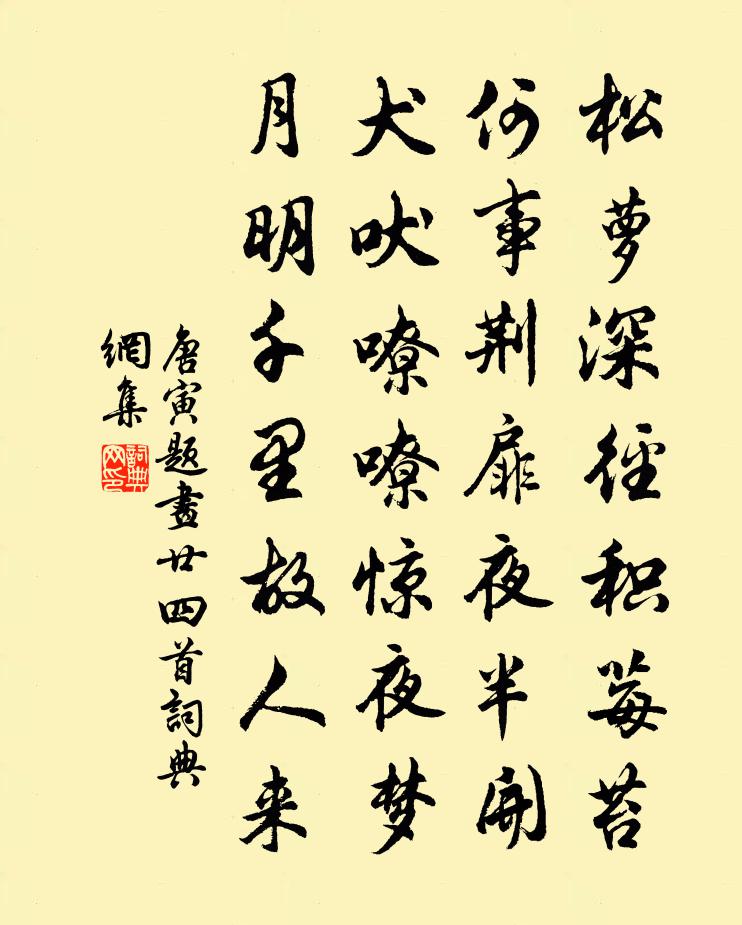 松萝深径积莓苔
何事荆扉夜半開
犬吠嘹嘹惊夜梦
月明千里故人来
唐寅題畫廿四首詞典
網集
詞典
网印